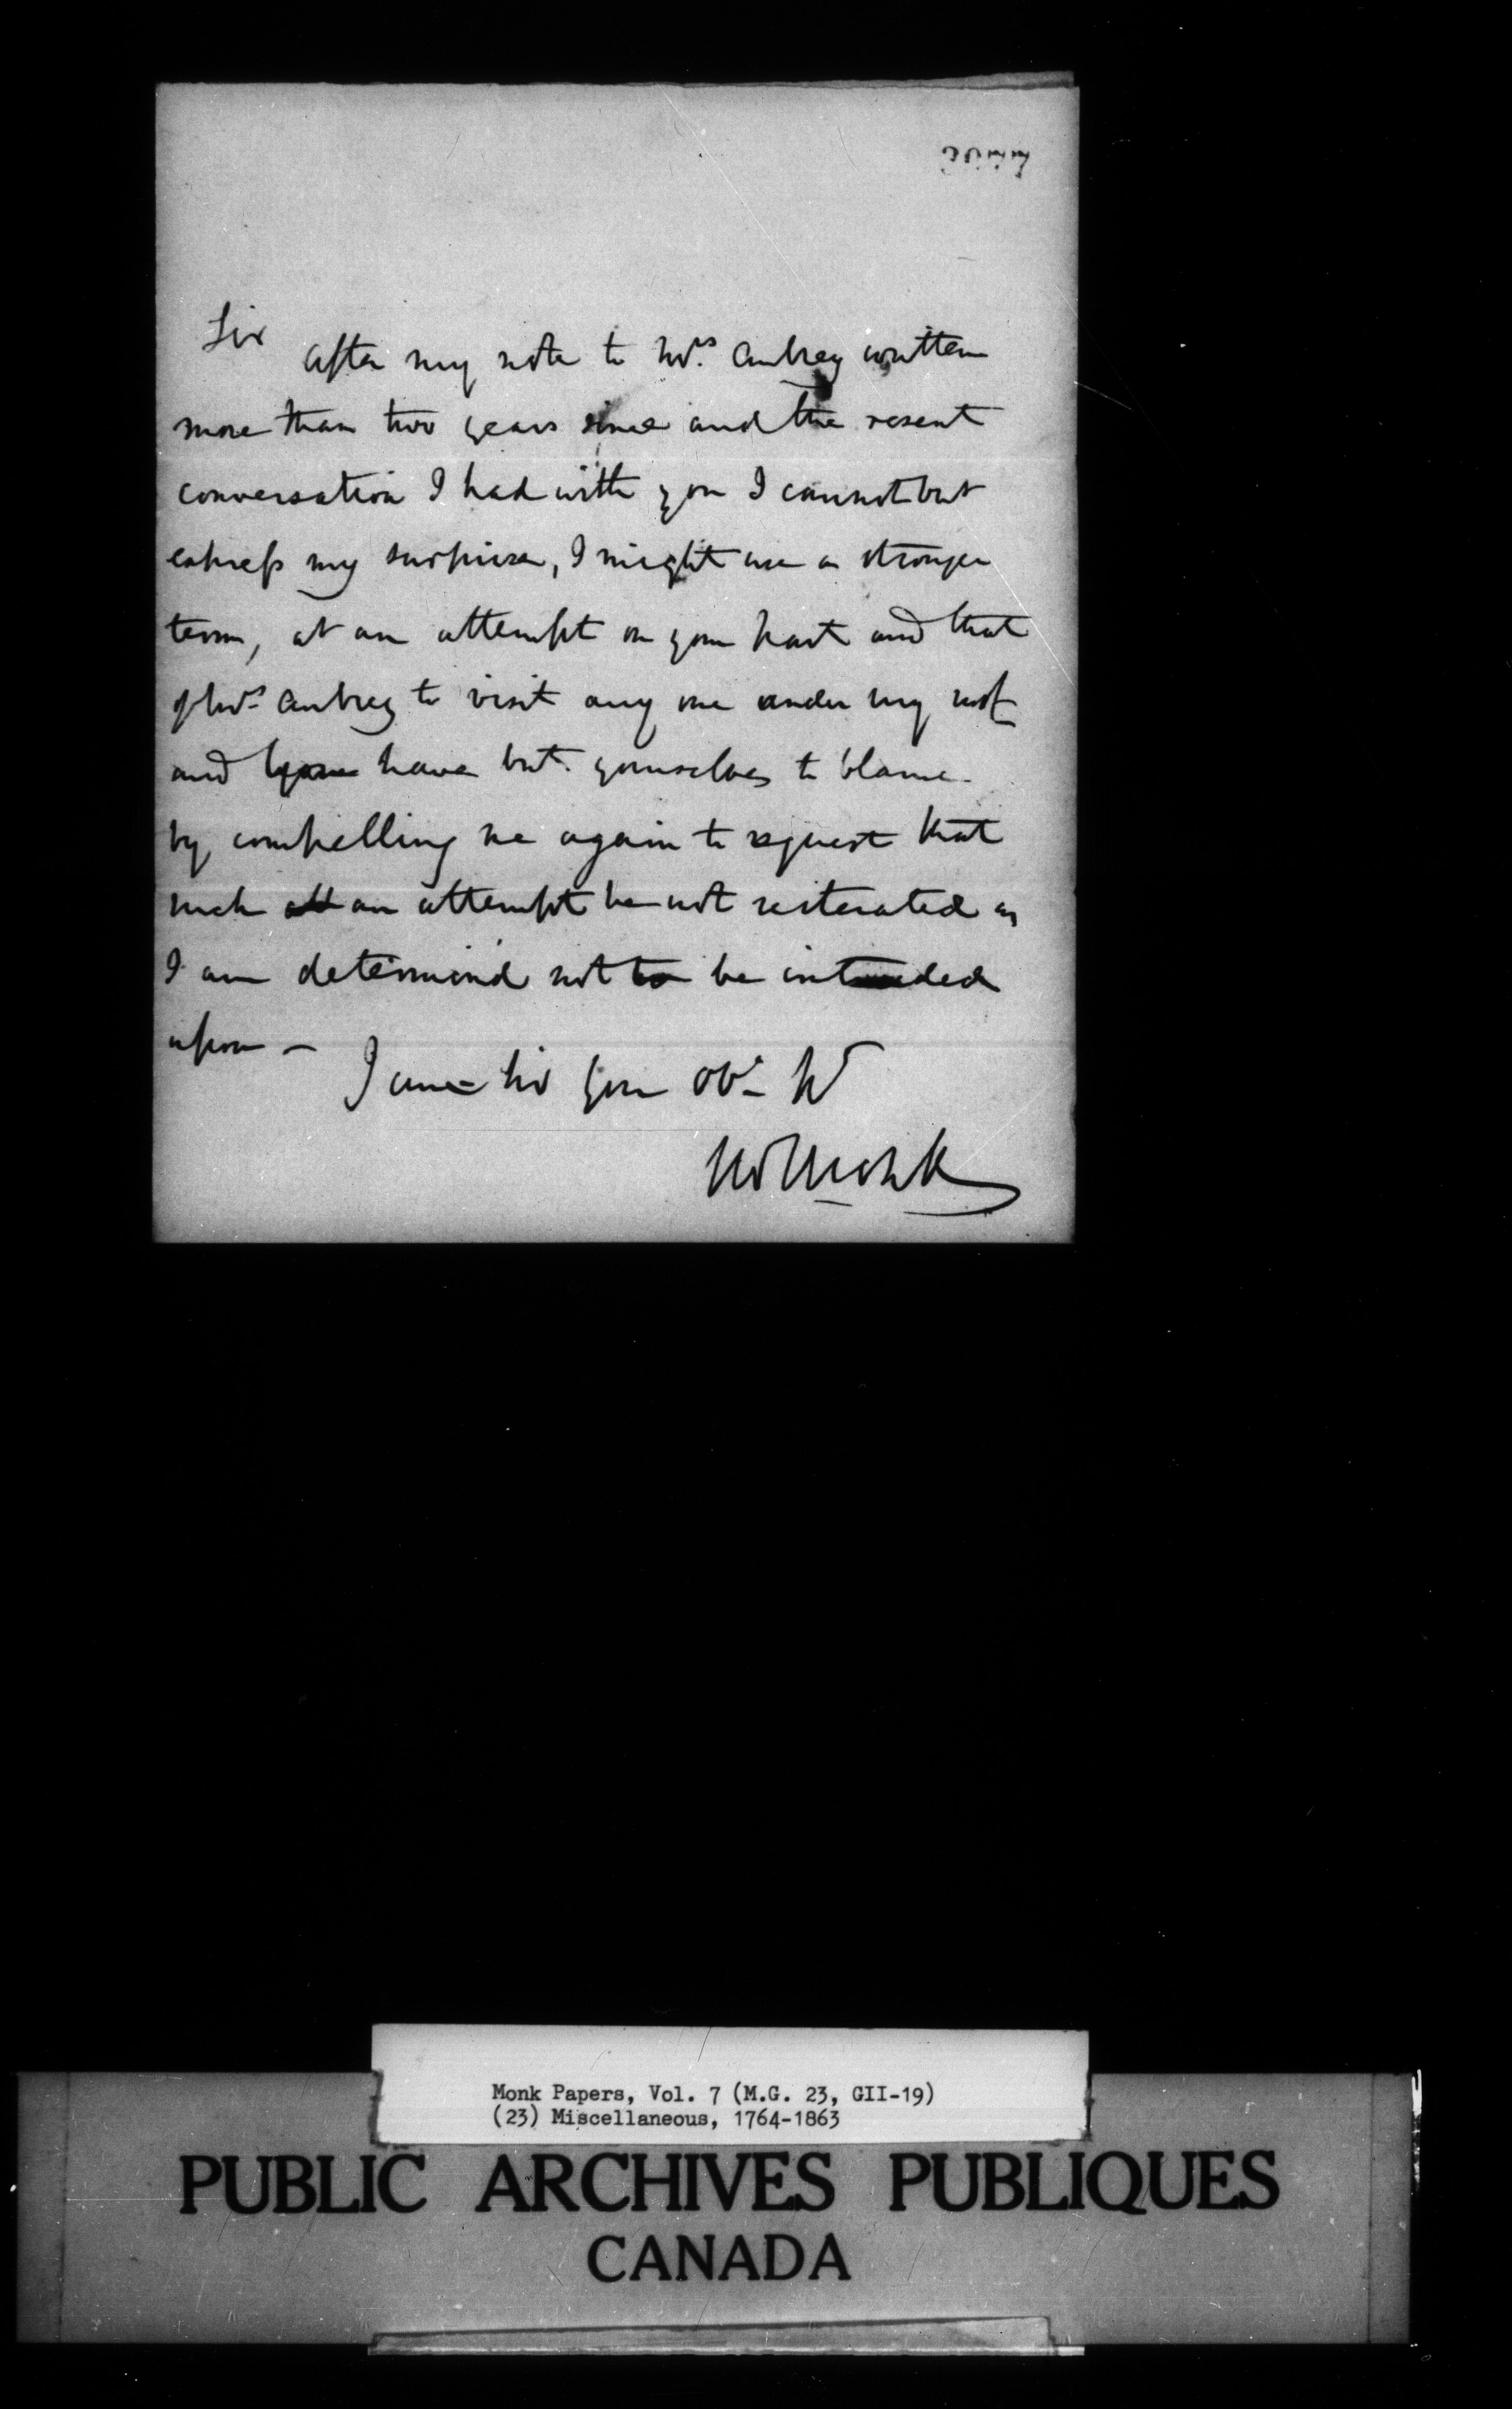 Sir
after my note to Mrs. Aubrey written
more than two years since and the resent
conversation I had with you I cannot but
express my surprize, I might use a stronger
term, at an attempt on your part and that
of Mrs. Aubrey to visit any one under my roof
and you have but yourselves to blame
by compelling me again to request that
such an attempt be not reiterated as
I am determind not to be intruded
upon —
I am Sir your Obt. St
Monk
Monk Papers, Vol. 7 (M.G. 23, GII-19)
(23) Miscellaneous, 1764-1863
PUBLIC ARCHIVES PUBLIQUES
CANADA